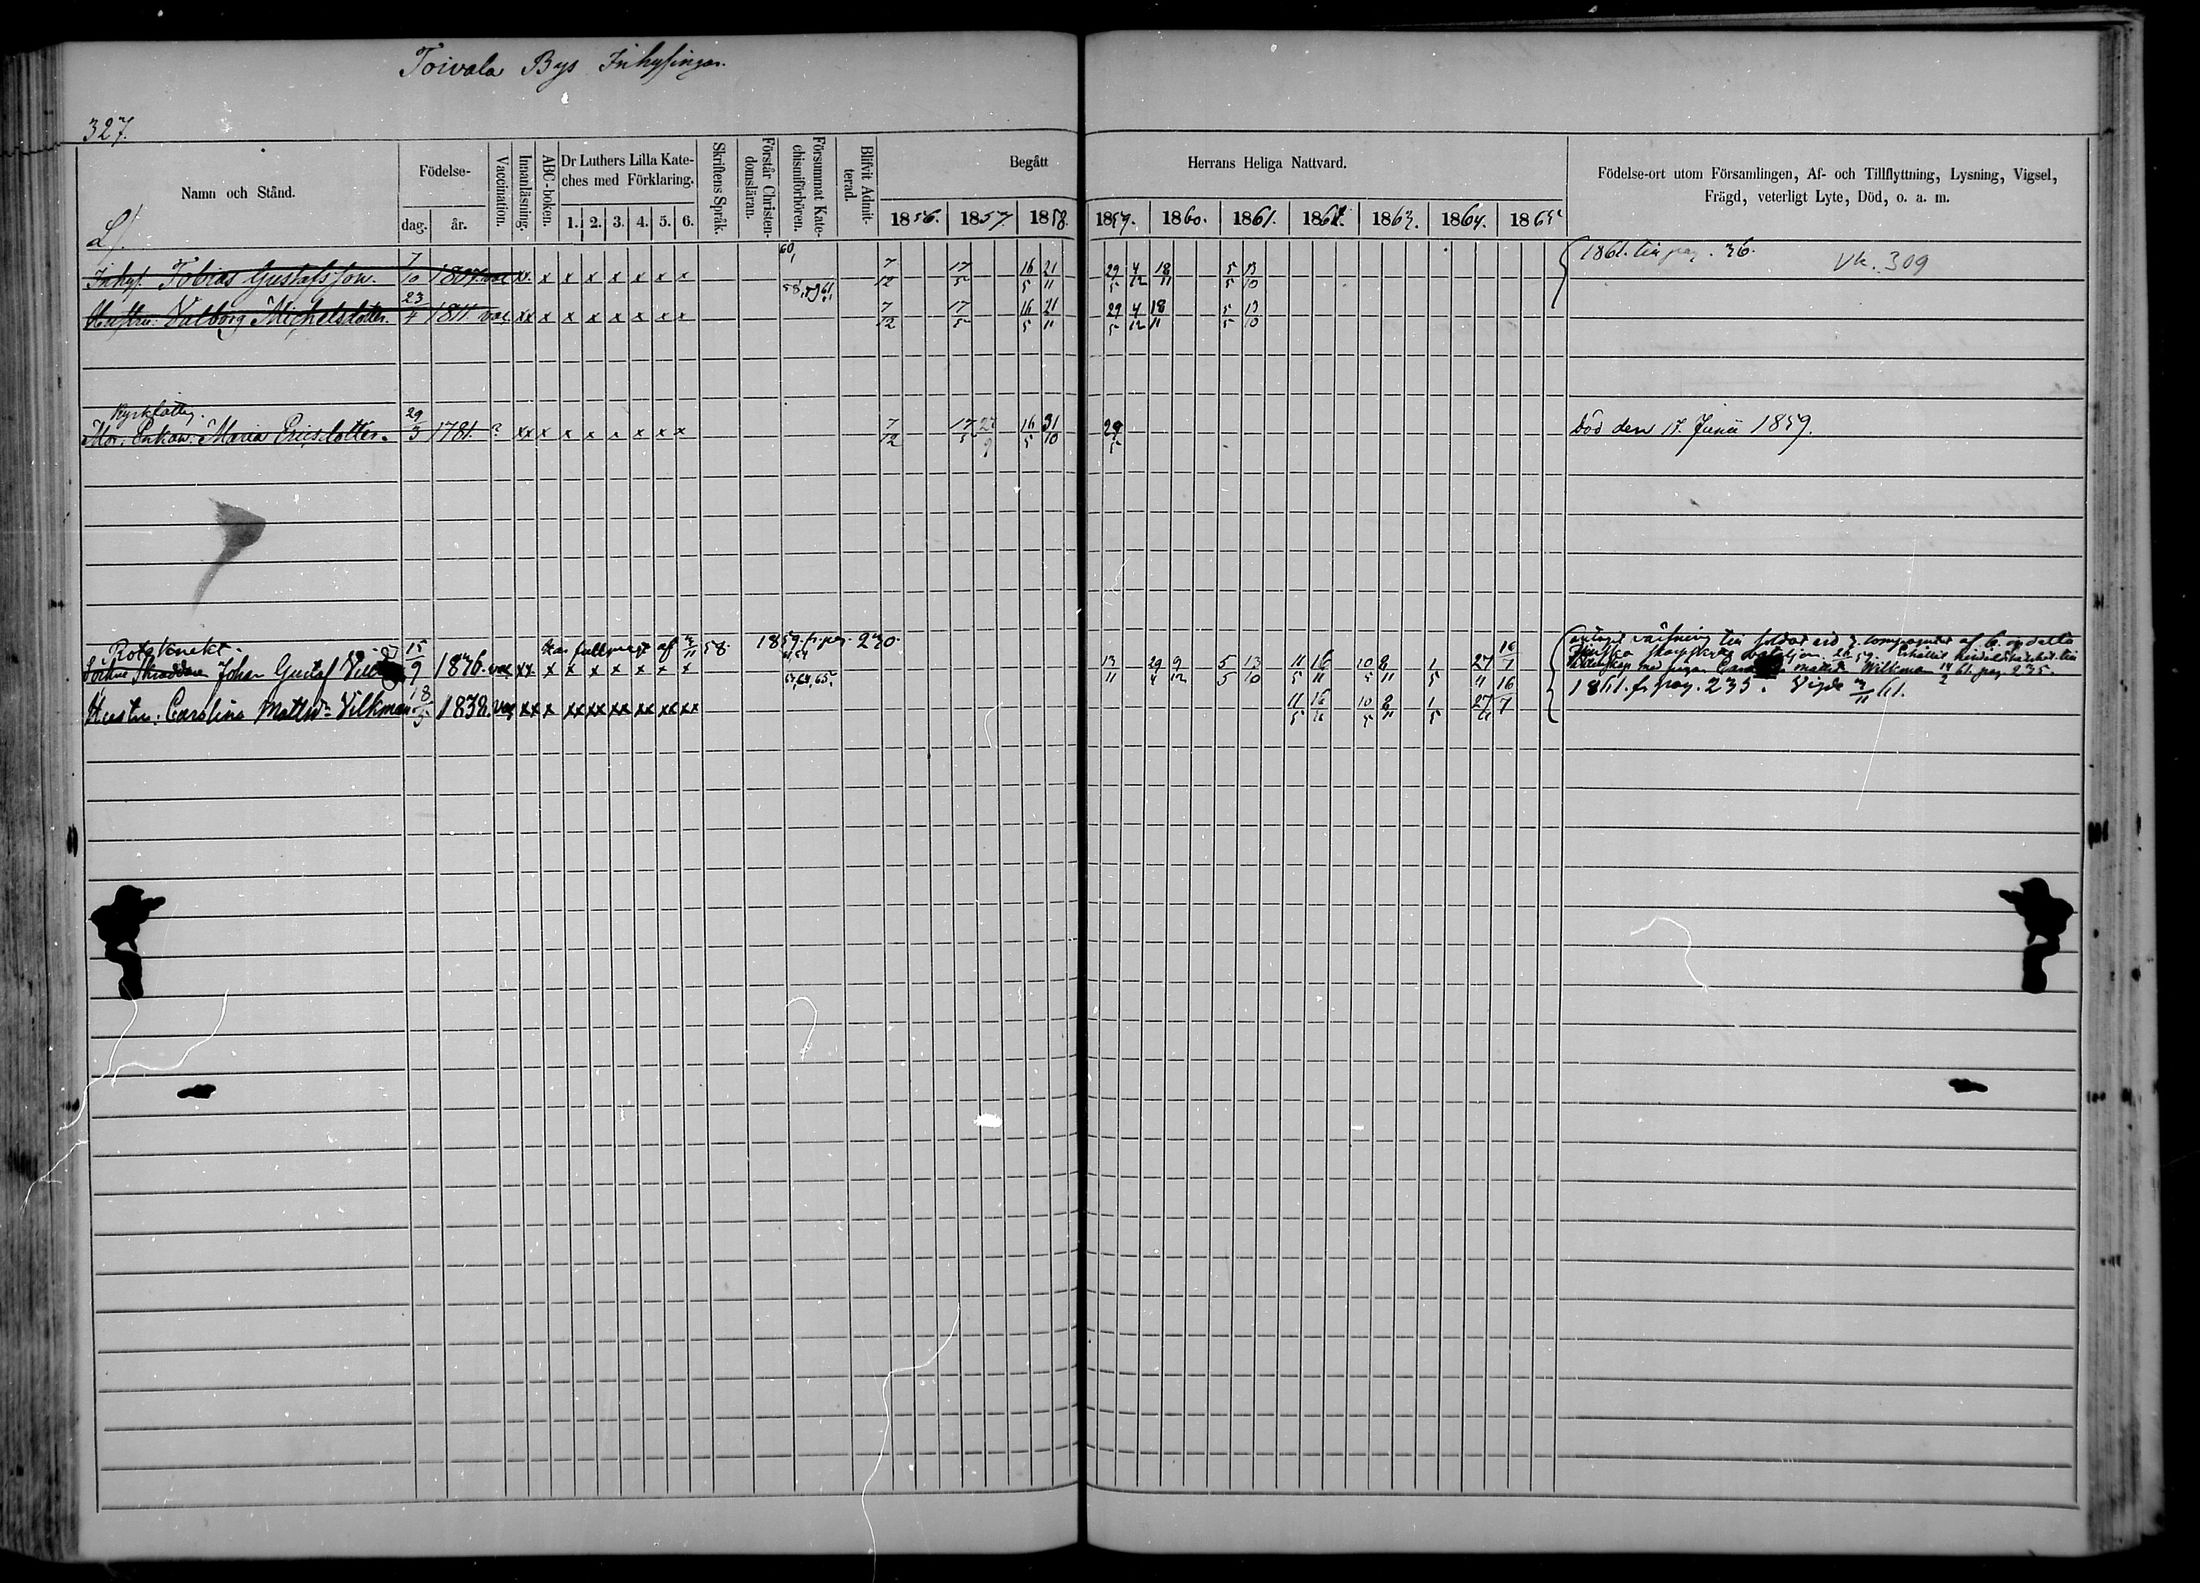 Toivala Bys Inhysingar.
327.
Namn och Stånd.
Födelse-
dag. år.
Vaccination.
Innanläsning.
ABC-boken.
Dr Luthers Lilla Kate-
ches med Förklaring.
1. 2. 3. 4. 5. 6.
Skriftens Språk.
Förstår Christen-
domsläran.
Försummat Kate-
chismiförhören.
Blifvit Admit-
terad.
Begått Herrans Heliga Nattvard.
1856. 1857. 1858. 1859. 1860. 1861. 1862. 1863. 1864. 1865
Födelse-ort utom Församlingen, Af- och Tillflyttning, Lysning, Vigsel,
Frägd, veterligt Lyte, Död, o. a. m.
60,
Inhys. Tobias Gustafsson. 7/10 1807. vac xx. x x x x x x x 7/12 17/5 16/5 21/11 29/5 4/12 18/11 5/5 13/10 1861. till pag. 36. Vk. 309
58, 59, 61
Hustru: Valborg Michelsdotter. 23/4 1811. vac xx x x x x x x x 7/12 17/5 16/5 21/11 29/5 4/12 18/11 5/5 13/10
Kyrkfattig.
Mor: Enkan: Maria Ericsdotter. 29/3 1781. ? xx x x x x x x x 7/12 17/5 27/9 16/5 31/10 29/5 Död den 17. Junii 1859.
Rotsknekt. Har fullmagt af 3/11 58. 1859. fr. pag. 230.
Johan Gustaf 15/9 1836. vac xx x x x x x x x 13/11 29/4 9/12 5/5 13/10 11/5 16/11 10/5 8/11 1/5 27/11 16/7
63, 64, 65.
Hustru: Carolina Mattsdr Vilkman 18/5 1838. vac xx x xx xx xx xx xx xx 11/5 16/11 10/5 8/11 1/5 27/11 16/7 1861. fr. pag. 235. Vigde 3/11 61.